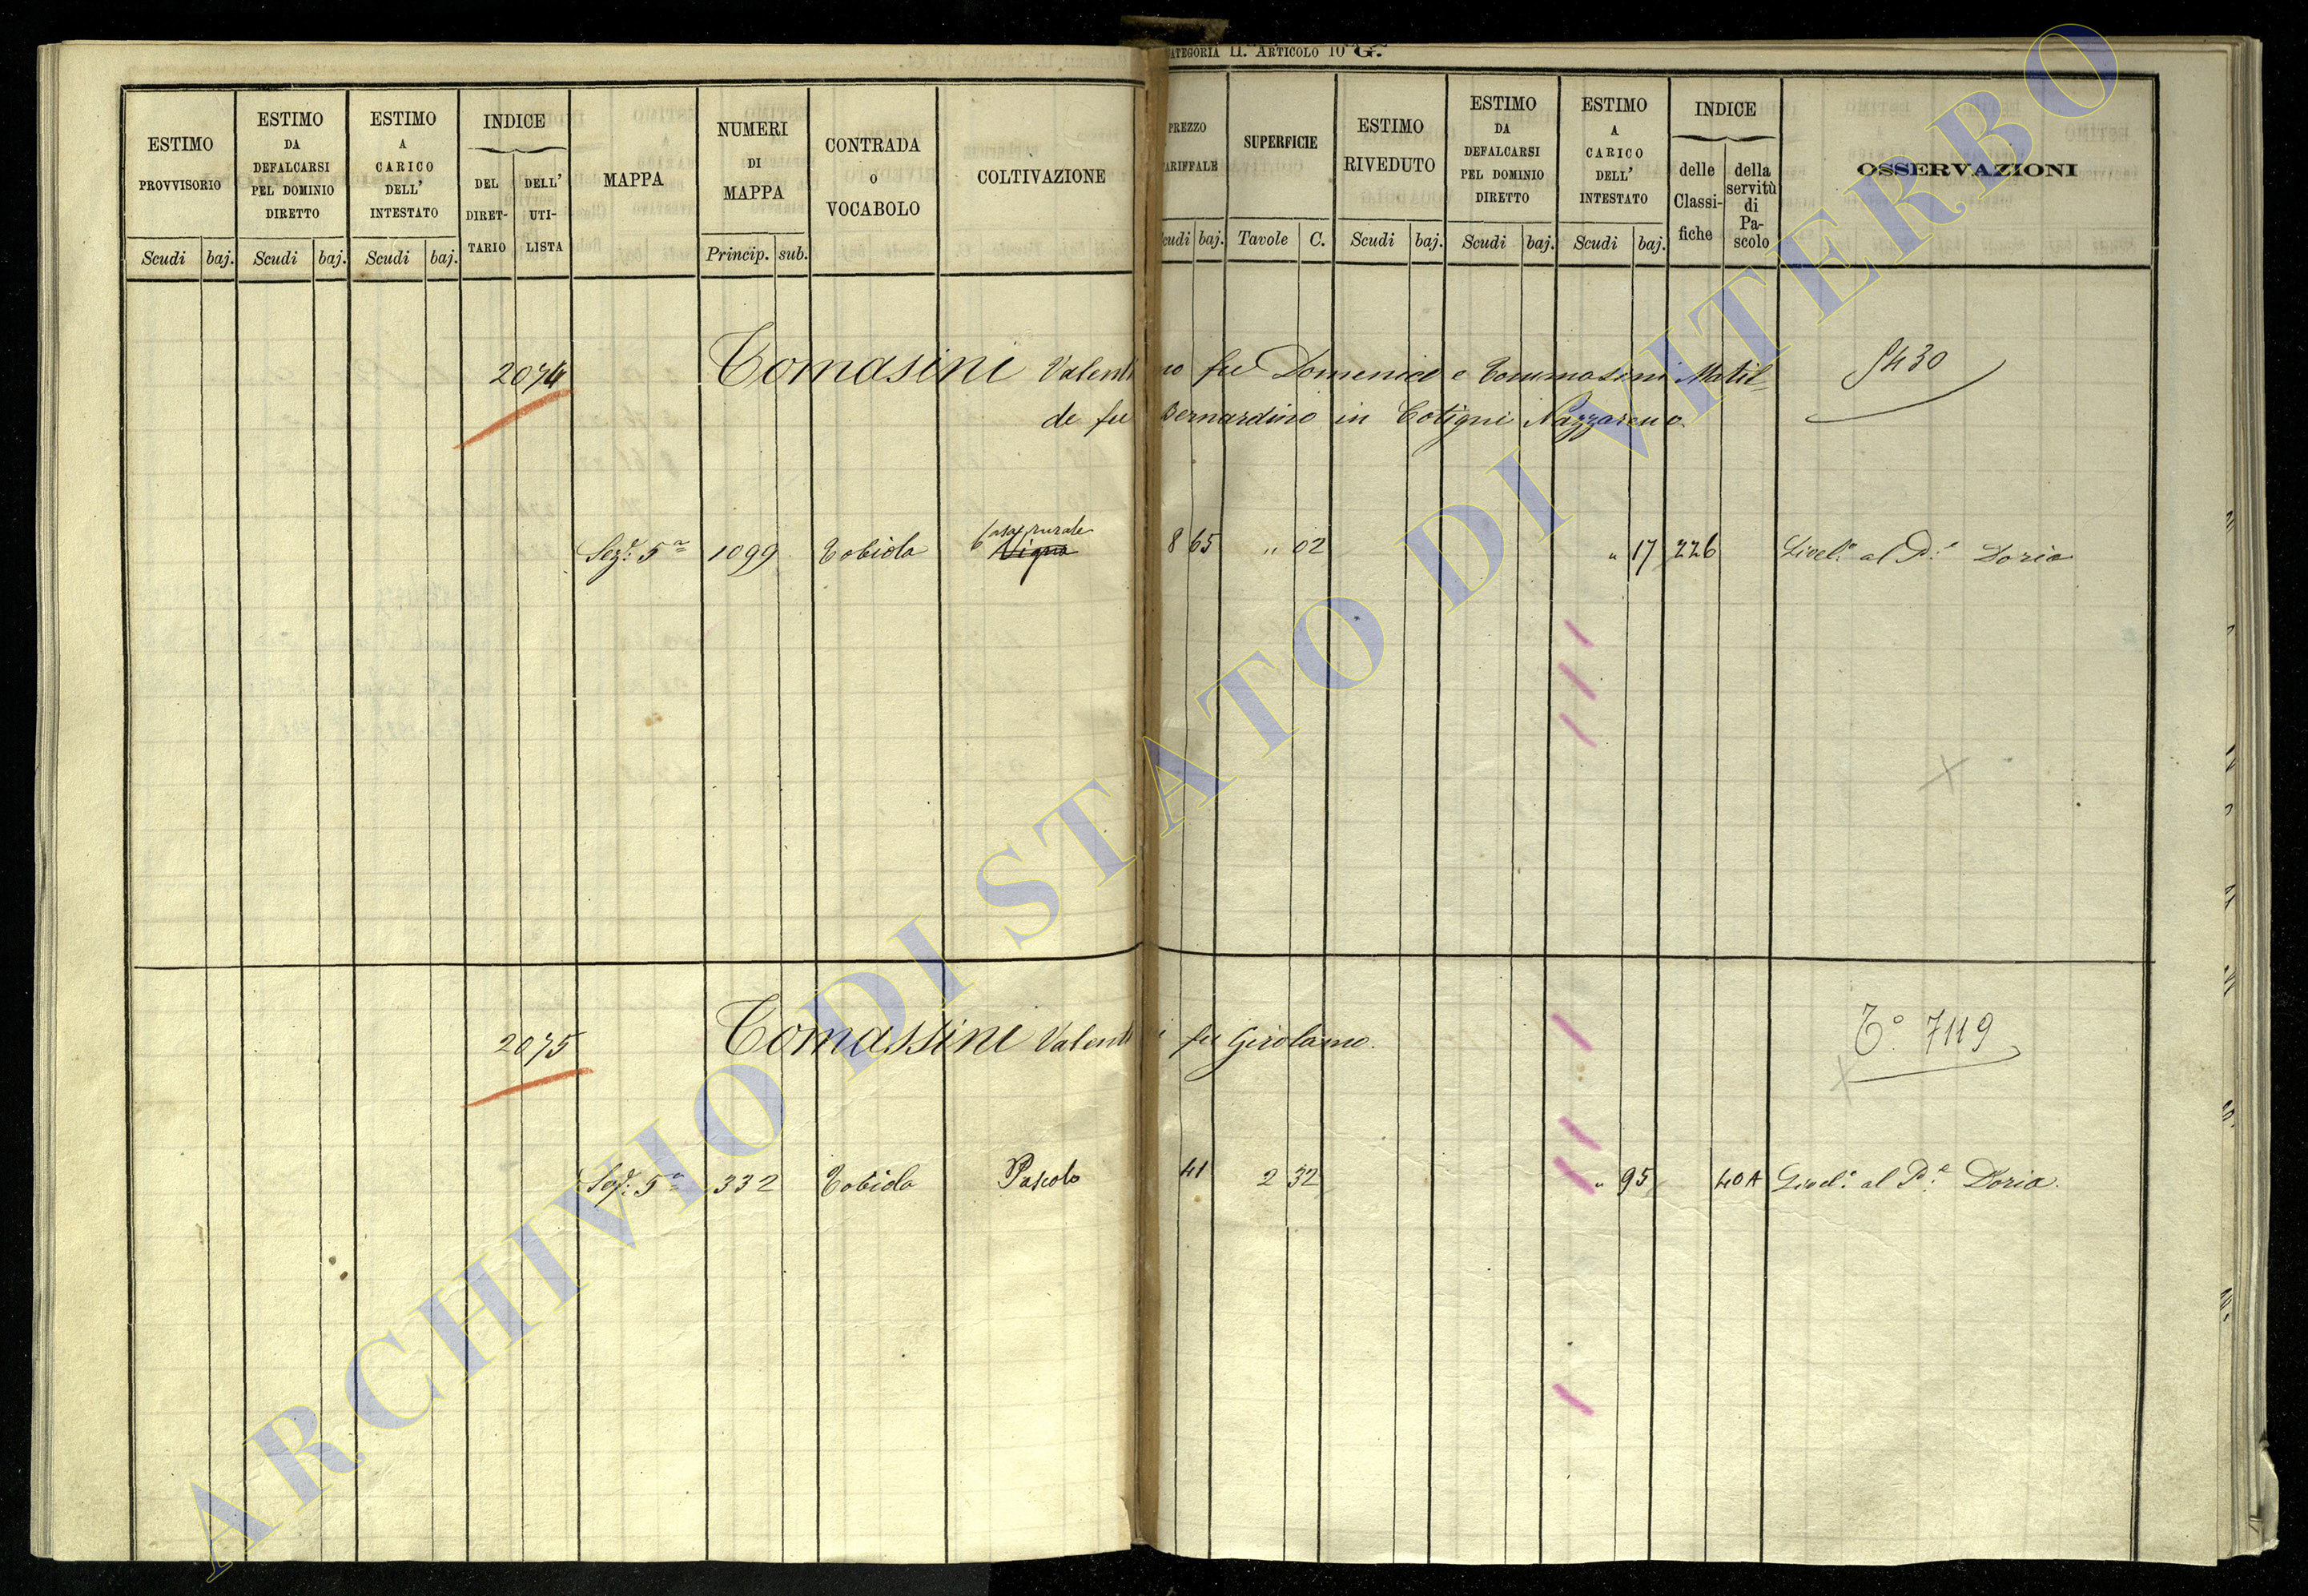 ATEGORIA II. ARTICOLO 10 G.
ESTIMO PROVVISORIO
Scudi baj.
ESTIMO DA DEFALCARSI PEL DOMINIO DIRETTO
Scudi baj.
ESTIMO A CARICO DELL' INTESTATO
Scudi baj.
INDICE
DEL DIRET-TARIO
DELL' UTI-LISTA
MAPPA
NUMERI DI MAPPA
Princip. sub.
CONTRADA O VOCABOLO
COLTIVAZIONE
PREZZO
ARIFFALE
cudi baj.
SUPERFICIE
Tavole C.
ESTIMO RIVEDUTO
Scudi baj.
ESTIMO DA DEFALCARSI PEL DOMINIO DIRETTO
Scudi baj.
ESTIMO A CARICO DELL' INTESTATO
Scudi baj.
INDICE
delle Classi-fiche
della servitù di Pa-scolo
OSSERVAZIONI
2074 Tomasini Valentino fu Domenico e Tommasini Matil-
de fu Bernardino in Cotigni Nazzareno.
Sez.e 5a 1099 Tobiola Casa rurale Vigna 8 65 " 02 " 17 226 Livel.o al P.e Doria
2075 Tomassini Valenti fu Girolamo.
T.o 7119
Sez.e 5a 332 Tobiola Pascolo 41 2 32 " 95 40A Livel.o al P.e Doria.
ARCHIVIO DI STATO DI VITERBO